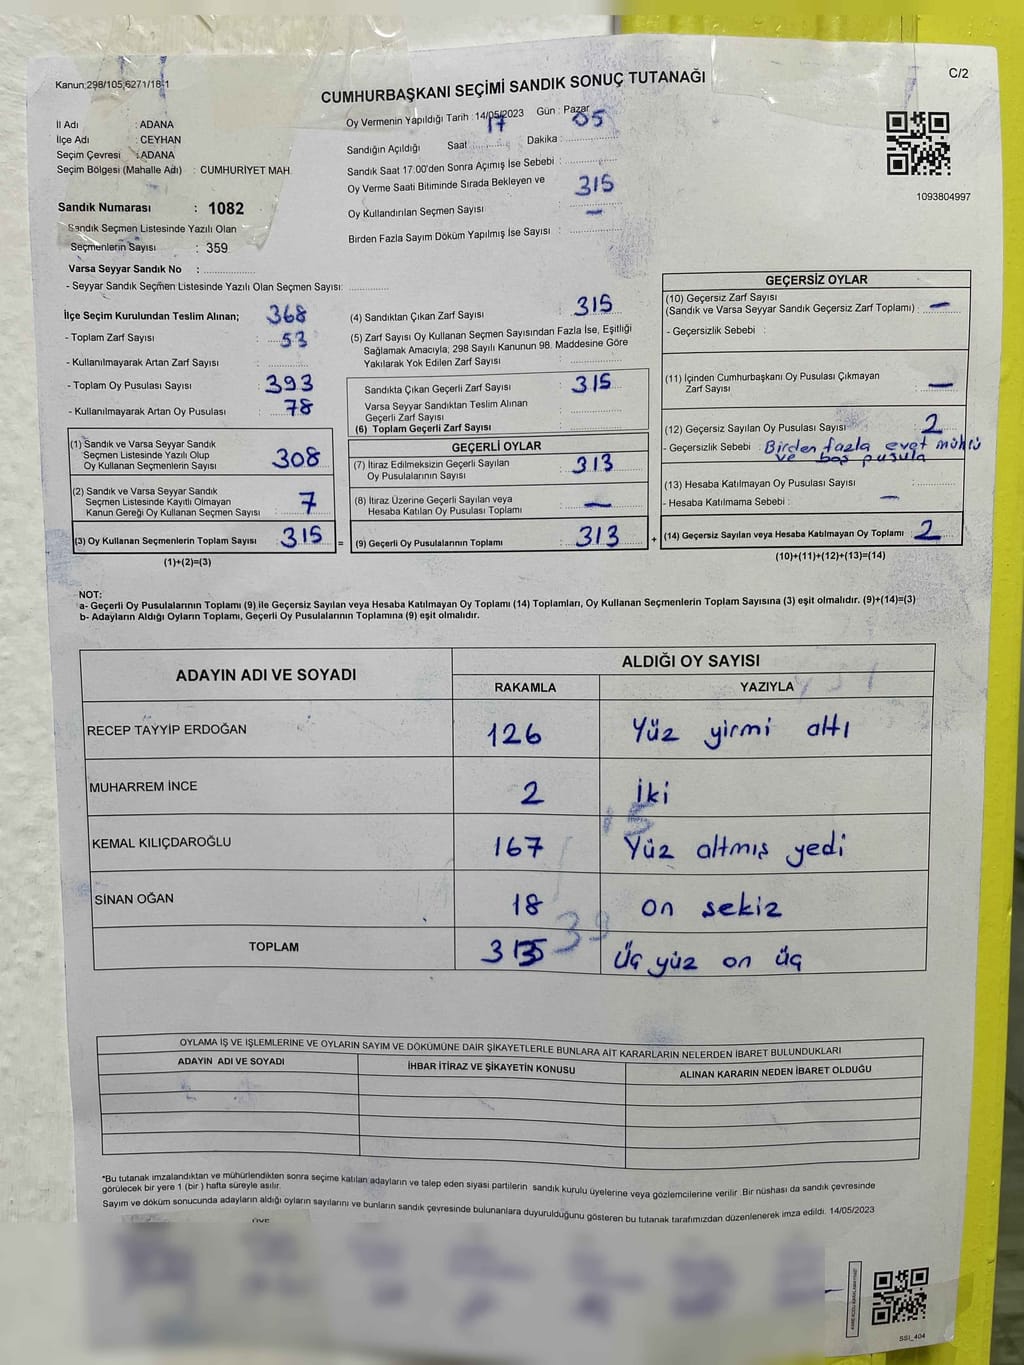 Kanun;298/105,6271/18-1
C/2
CUMHURBAŞKANI SEÇİMİ SANDIK SONUÇ TUTANAĞI
İl Adı : ADANA
İlçe Adı : CEYHAN
Seçim Çevresi : ADANA
Seçim Bölgesi (Mahalle Adı) : CUMHURİYET MAH.
Sandık Numarası : 1082
Sandık Seçmen Listesinde Yazılı Olan
Seçmenlerin Sayısı : 359
Oy Vermenin Yapıldığı Tarih : 14/05/2023 Gün : Pazar
Sandığın Açıldığı Saat : 17 Dakika : 05
Sandık Saat 17:00'den Sonra Açımış İse Sebebi :
Oy Verme Saati Bitiminde Sırada Bekleyen ve
Oy Kullandırılan Seçmen Sayısı : 315
Birden Fazla Sayım Döküm Yapılmış İse Sayısı : —
1093804997
Varsa Seyyar Sandık No :
- Seyyar Sandık Seçmen Listesinde Yazılı Olan Seçmen Sayısı:
İlçe Seçim Kurulundan Teslim Alınan;
- Toplam Zarf Sayısı : 368
- Kullanılmayarak Artan Zarf Sayısı : 53
- Toplam Oy Pusulası Sayısı : 393
- Kullanılmayarak Artan Oy Pusulası : 78
(1) Sandık ve Varsa Seyyar Sandık
Seçmen Listesinde Yazılı Olup
Oy Kullanan Seçmenlerin Sayısı 308
(2) Sandık ve Varsa Seyyar Sandık
Seçmen Listesinde Kayıtlı Olmayan
Kanun Gereği Oy Kullanan Seçmen Sayısı : 7
(3) Oy Kullanan Seçmenlerin Toplam Sayısı 315 =
(1)+(2)=(3)
(4) Sandıktan Çıkan Zarf Sayısı : 315
(5) Zarf Sayısı Oy Kullanan Seçmen Sayısından Fazla İse, Eşitliği
Sağlamak Amacıyla; 298 Sayılı Kanunun 98. Maddesine Göre
Yakılarak Yok Edilen Zarf Sayısı :
Sandıkta Çıkan Geçerli Zarf Sayısı : 315
Varsa Seyyar Sandıktan Teslim Alınan
Geçerli Zarf Sayısı :
(6) Toplam Geçerli Zarf Sayısı :
GEÇERLİ OYLAR
(7) İtiraz Edilmeksizin Geçerli Sayılan
Oy Pusulalarının Sayısı : 313
(8) İtiraz Üzerine Geçerli Sayılan veya
Hesaba Katılan Oy Pusulası Toplamı : —
(9) Geçerli Oy Pusulalarının Toplamı : 313 +
GEÇERSİZ OYLAR
(10) Geçersiz Zarf Sayısı
(Sandık ve Varsa Seyyar Sandık Geçersiz Zarf Toplamı) : —
- Geçersizlik Sebebi :
(11) İçinden Cumhurbaşkanı Oy Pusulası Çıkmayan
Zarf Sayısı : —
(12) Geçersiz Sayılan Oy Pusulası Sayısı : 2
- Geçersizlik Sebebi : Birden fazla evet mühlü
ve boş pusula
(13) Hesaba Katılmayan Oy Pusulası Sayısı :
- Hesaba Katılmama Sebebi : —
(14) Geçersiz Sayılan veya Hesaba Katılmayan Oy Toplamı : 2
(10)+(11)+(12)+(13)=(14)
NOT:
a- Geçerli Oy Pusulalarının Toplamı (9) ile Geçersiz Sayılan veya Hesaba Katılmayan Oy Toplamı (14) Toplamları, Oy Kullanan Seçmenlerin Toplam Sayısına (3) eşit olmalıdır. (9)+(14)=(3)
b- Adayların Aldığı Oyların Toplamı, Geçerli Oy Pusulalarının Toplamına (9) eşit olmalıdır.
ADAYIN ADI VE SOYADI
ALDIĞI OY SAYISI
RAKAMLA YAZIYLA
RECEP TAYYİP ERDOĞAN 126 Yüz yirmi altı
MUHARREM İNCE 2 İki
KEMAL KILIÇDAROĞLU 167 Yüz altmış yedi
SİNAN OĞAN 18 on sekiz
TOPLAM 313 Üç yüz on üç
OYLAMA İŞ VE İŞLEMLERİNE VE OYLARIN SAYIM VE DÖKÜMÜNE DAİR ŞİKAYETLERLE BUNLARA AİT KARARLARIN NELERDEN İBARET BULUNDUKLARI
ADAYIN ADI VE SOYADI
İHBAR İTİRAZ VE ŞİKAYETİN KONUSU
ALINAN KARARIN NEDEN İBARET OLDUĞU
*Bu tutanak imzalandıktan ve mühürlendikten sonra seçime katılan adayların ve talep eden siyasi partilerin sandık kurulu üyelerine veya gözlemcilerine verilir .Bir nüshası da sandık çevresinde
görülecek bir yere 1 (bir ) hafta süreyle asılır.
Sayım ve döküm sonucunda adayların aldığı oyların sayılarını ve bunların sandık çevresinde bulunanlara duyurulduğunu gösteren bu tutanak tarafımızdan düzenlenerek imza edildi. 14/05/2023
SSI_404